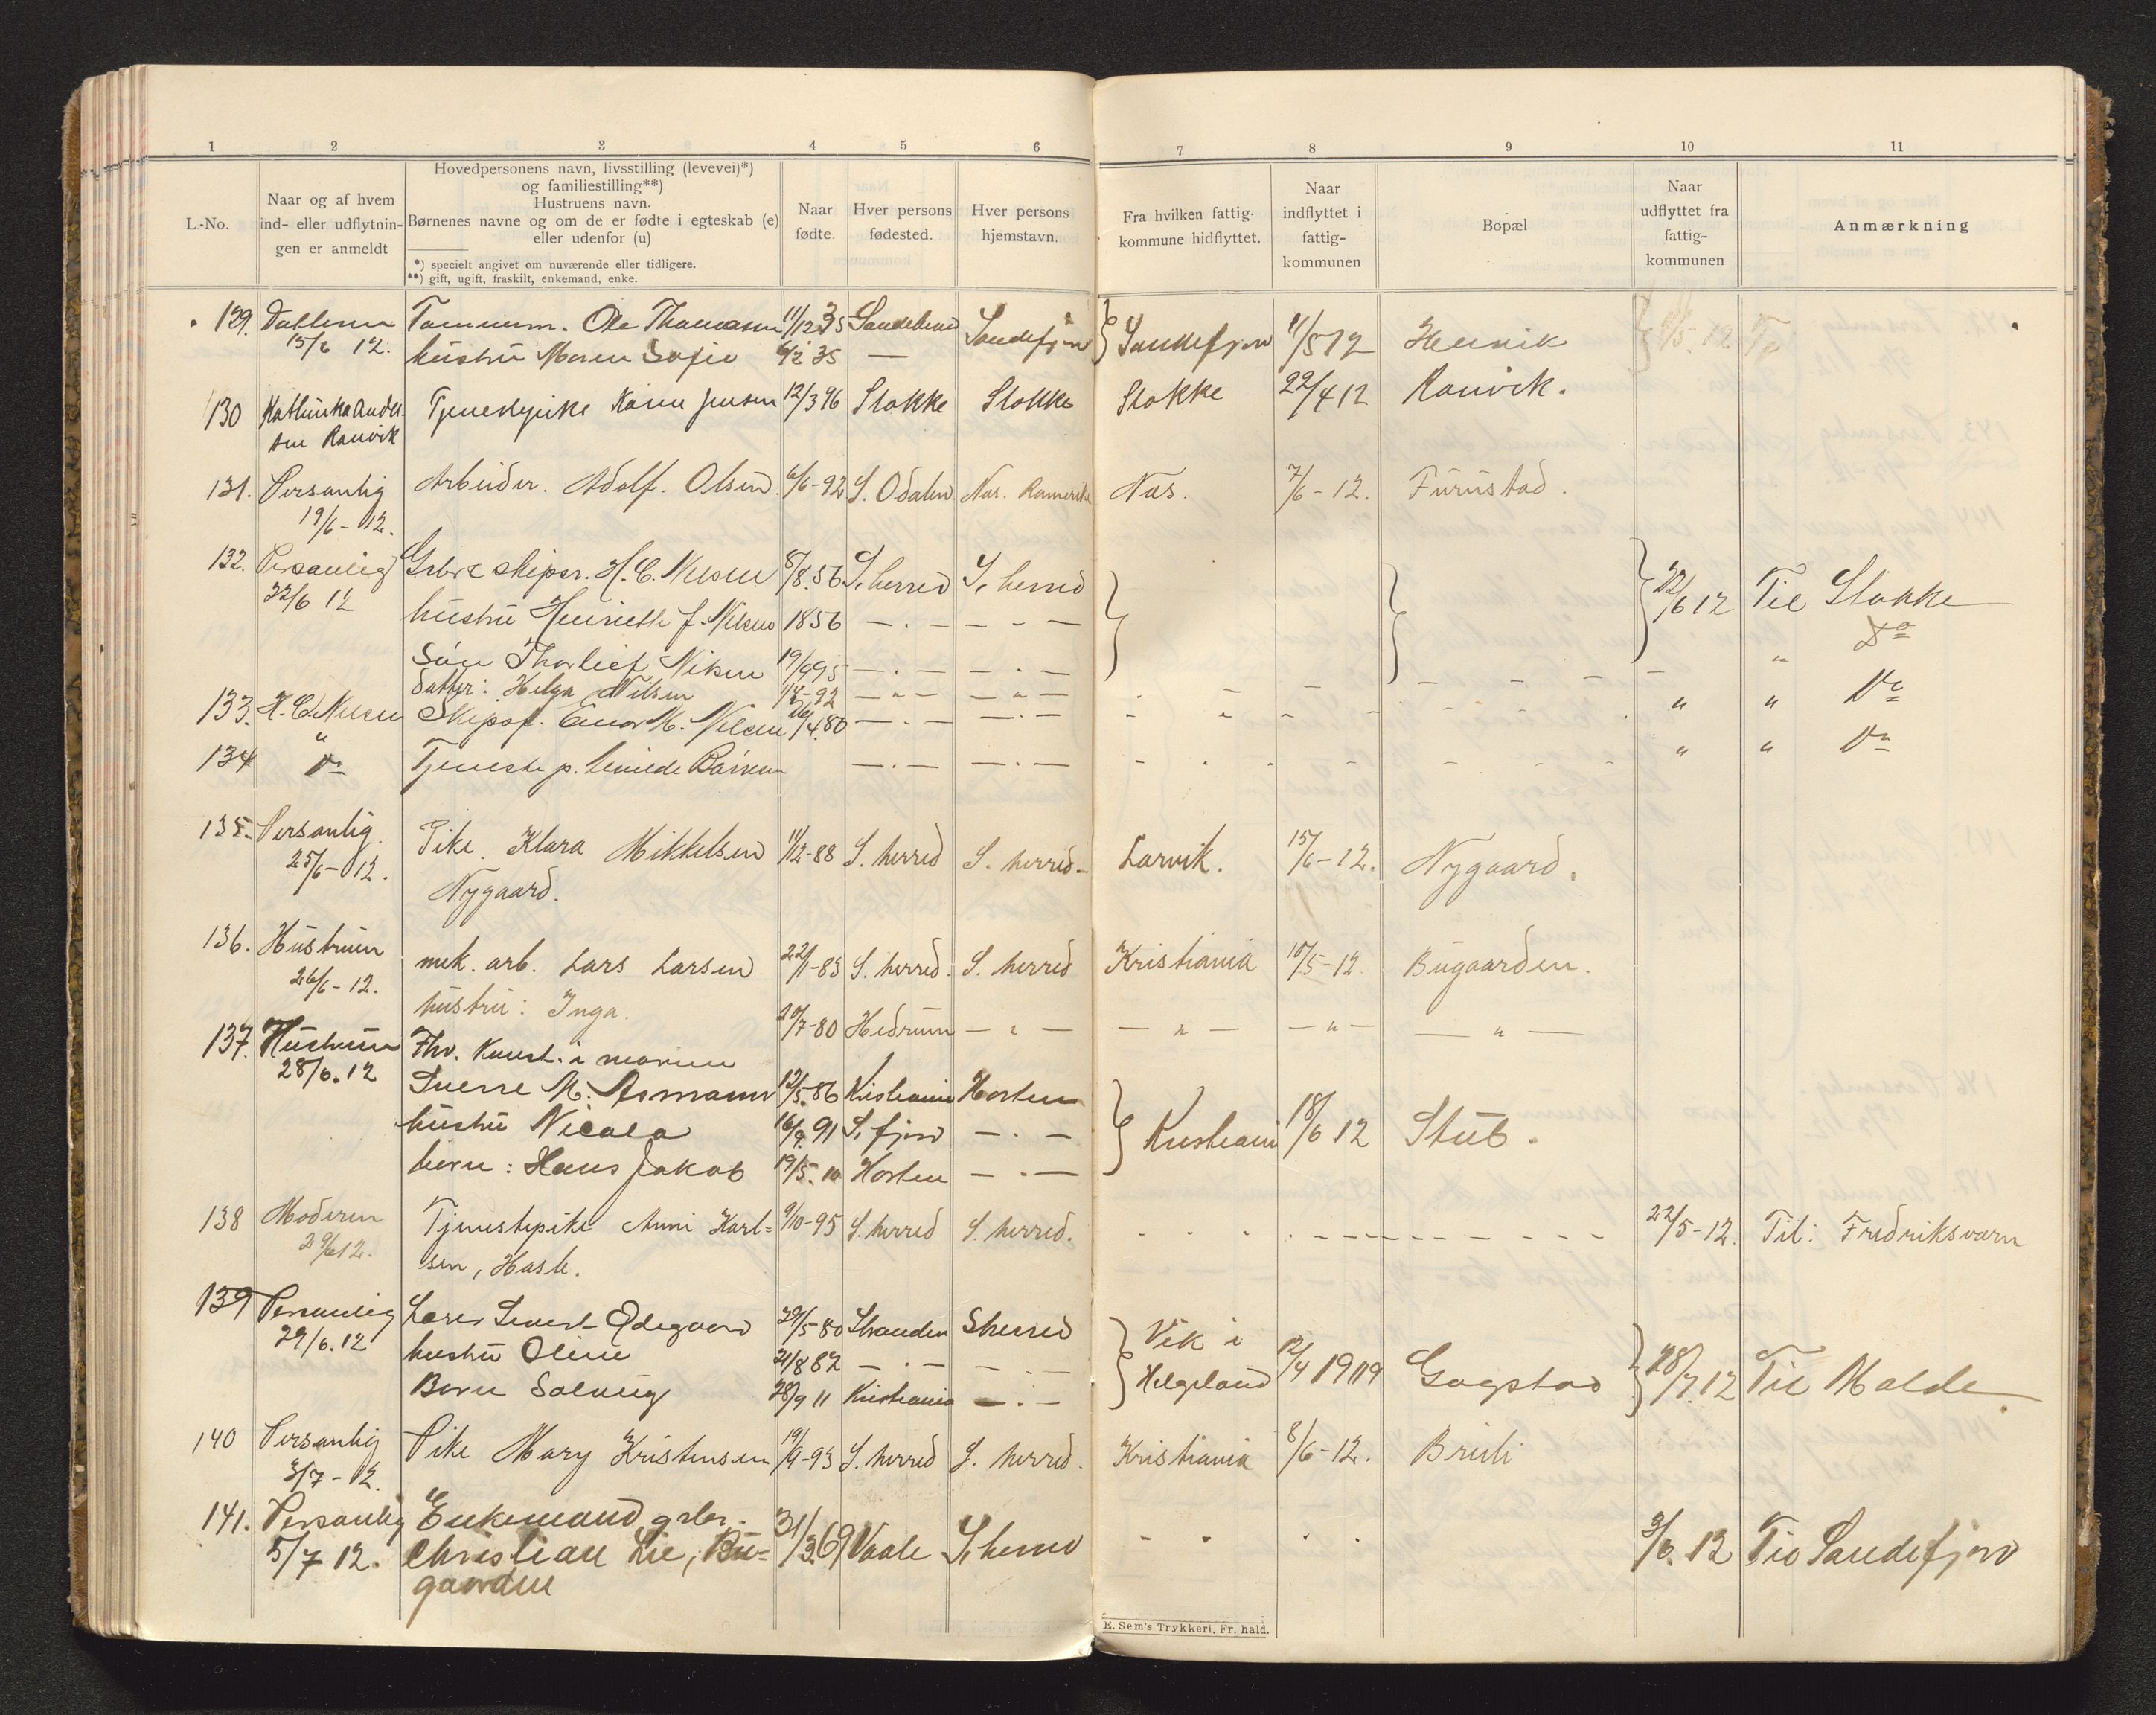 1 2 3 4 5 6 7 8 9 10 11
L.-No.
Naar og af hvem
ind- eller udflytnin-
gen er anmeldt
Hovedpersonens navn, livsstilling (levevei)*)
og familiestilling**)
Hustruens navn.
Børnenes navne og om de er fødte i egteskab (e)
eller udenfor (u)
*) specielt angivet om nuværende eller tidligere.
**) gift, ugift, fraskilt, enkemand, enke.
Naar
fødte
Hver persons
fødested.
Hver persons
hjemstavn.
Fra hvilken fattig-
kommune hidflyttet.
Naar
indflyttet i
fattig-
kommunen
Bopæl
Naar
udflyttet fra
fattig-
kommunen
Anmærkning
129. Datteren Tømmerm. Ole Thomassen 11/12 35 Sandeherred Sandefjord } Sandefjord 11/5 12 Hennik
15/6 12. hustru Maren Sofie 6/2 35 —
130 Kathinka Ander- Tjenestepike Karen Jensen 12/3 96 Stokke Stokke Stokke 22/4 12 Ranvik.
sen Ranvik
131. Personlig Arbeider. Adolf. Olsen. 6/6-92 S. Odalen Nas. Romerike Nas. 7/6-12. Furustad.
19/6-12.
132. Personlig Grbr & skipsr. H. C. Nilsen 8/8.56 S. herred S. herred } } } 22/6 12 Til Stokke
22/6 12 hustru Henriette J. Nilsen 1856 — . — — - —
Søn Thorleif Nilsen 19/9 95 — . — — . — " Do
datter: Helga Nilsen 1/8-92 — " — — " —
133. H. C. Nilsen Skipsf. Einar M. Nilsen 26/4.80 — . — — . — " " Do
134 " Do Tjeneste p. — . — — . — " " Do
135. Personlig. Pike. Klara Mikkelsen 11/12-88 S. herred S. herred- Larvik. 15/6-12. Nygaard.
25/6-12. Nygaard.
136. Hustruen mek. arb. Lars Larsen 22/1-83 S. herred. S. herred Kristiania 10/5-12 Bugaarden.
26/6-12. hustru: Inga. 20/7-80 Hedrum — " — — " — — " — — " —
137. Hustruen Fhv. Konst. i marinen
28/6.12 Sverre M. Asmann 12/5.86 Kristiania Horten } Kristiania 18/6 12 Stub.
hustru Nicola 16/9.91 S. fjord — . —
børn: Hans Jakob 19/5.10 Horten — . —
138 Moderen Tjenestepike Anni Karl= 9/10-95 S. herred S. herred. 22/5-12. Til: Fredriksvarn
29/6 12. sen, Hasle.
139 Personlig Læser Sivert Ødegaard 29/5 80 Stranden Sherred } Vik i Helgeland 12/4 1909 Gogstad } 28/7.12 Til Molde
29/6.12 hustru Oline 21/8 82 — . —
Børn Solveig 28/9 11 Kristiania — . —
140 Personlig Pike Mary Kristensen 19/9-93 S. herred S. herred. Kristiania 8/6-12. Breili
3/7-12.
141. Personlig Enkemand grbr. 31/3.69 Vaale S. herred 3/6.12 Til Sandefjord
5/7 12. Christian Lie, Bu=
gaarden
E. Sem's Trykkeri, Fr. hald.